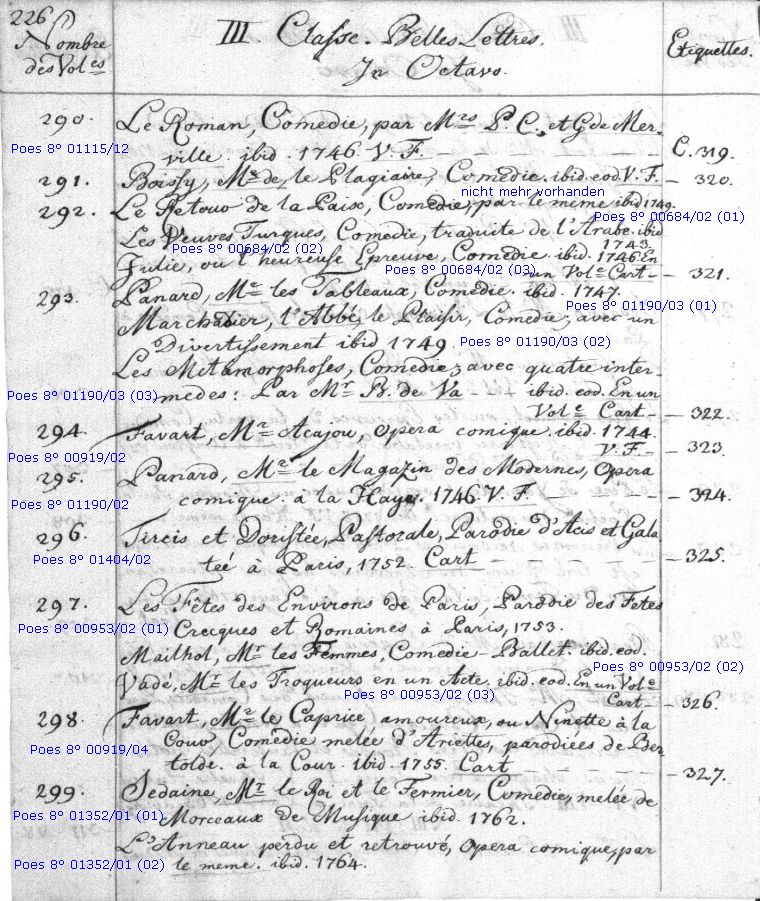 226
Nombre
des Vol.es
III. Classe. Belles Lettres.
In Octavo.
Etiquettes.
290. Le Roman, Comedie, par Mrs P. C. et G. de Mer-
Poes 8° 01115/12
ville. ibid. 1746. V. F. - - - - C. 319.
291. Boissy, Mr. de, le Plagiaire, Comedie. ibid. eod. V. F. - 320.
nicht mehr vorhanden
292. Le Retour de la Paix, Comedie, par le meme ibid 1749.
Poes 8° 00684/02 (01)
Les Veuves Turques, Comedie, traduite de l'Arabe. ibid
1743.
Poes 8° 00684/02 (02)
Julie, ou l'heureuse Epreuve, Comedie. ibid. 1746. En
Poes 8° 00684/02 (03)
un Vole Cart - - 321.
293. Panard, Mr. les Tableaux, Comedie. ibid. 1747.
Poes 8° 01190/03 (01)
Marchadier, l'Abbé, le Plaisir, Comedie, avec un
Divertissement ibid 1749.
Poes 8° 01190/03 (02)
Les Metamorphoses, Comedie, avec quatre inter-
Poes 8° 01190/03 (03)
medes: Par Mr B. de Va - - ibid. eod. En un
Vole Cart - - 322.
294. Favart, Mr. Acajou, opera comique. ibid. 1744.
Poes 8° 00919/02
V. F. - - 323.
295. Panard, Mr. le Magazin des Modernes, Opera
Poes 8° 01190/02
comique. à la Haye. 1746. V. F. - - - 324.
296. Tircis et Doristée, Pastorale, Parodie d'Acis et Gala
Poes 8° 01404/02
teé à Paris, 1752. Cart - - - - 325.
297. Les Fêtes des Environs de Paris, Parodie des Fetes
Poes 8° 00953/02 (01)
Grecques et Romaines à Paris, 1753.
Mailhol, Mr. les Femmes, Comedie-Ballet. ibid. eod.
Poes 8° 00953/02 (02)
Vadé, Mr. les Troqueurs en un Acte. ibid. eod. En un Vole
Poes 8° 00953/02 (03)
Cart - - 326.
298. Favart, Mr. le Caprice amoureux, ou Ninette à la
Poes 8° 00919/04
Cour Comedie melée d'Ariettes, parodiées de Ber
tolde. à la Cour. ibid. 1755. Cart - - - - 327.
299. Sedaine, Mr. le Roi et le Fermier, Comedie, melée de
Poes 8° 01352/01 (01)
Morceaux de Musique ibid. 1762.
L'Anneau perdu et retrouvé, Opera comique, par
Poes 8° 01352/01 (02)
le meme. ibid. 1764.